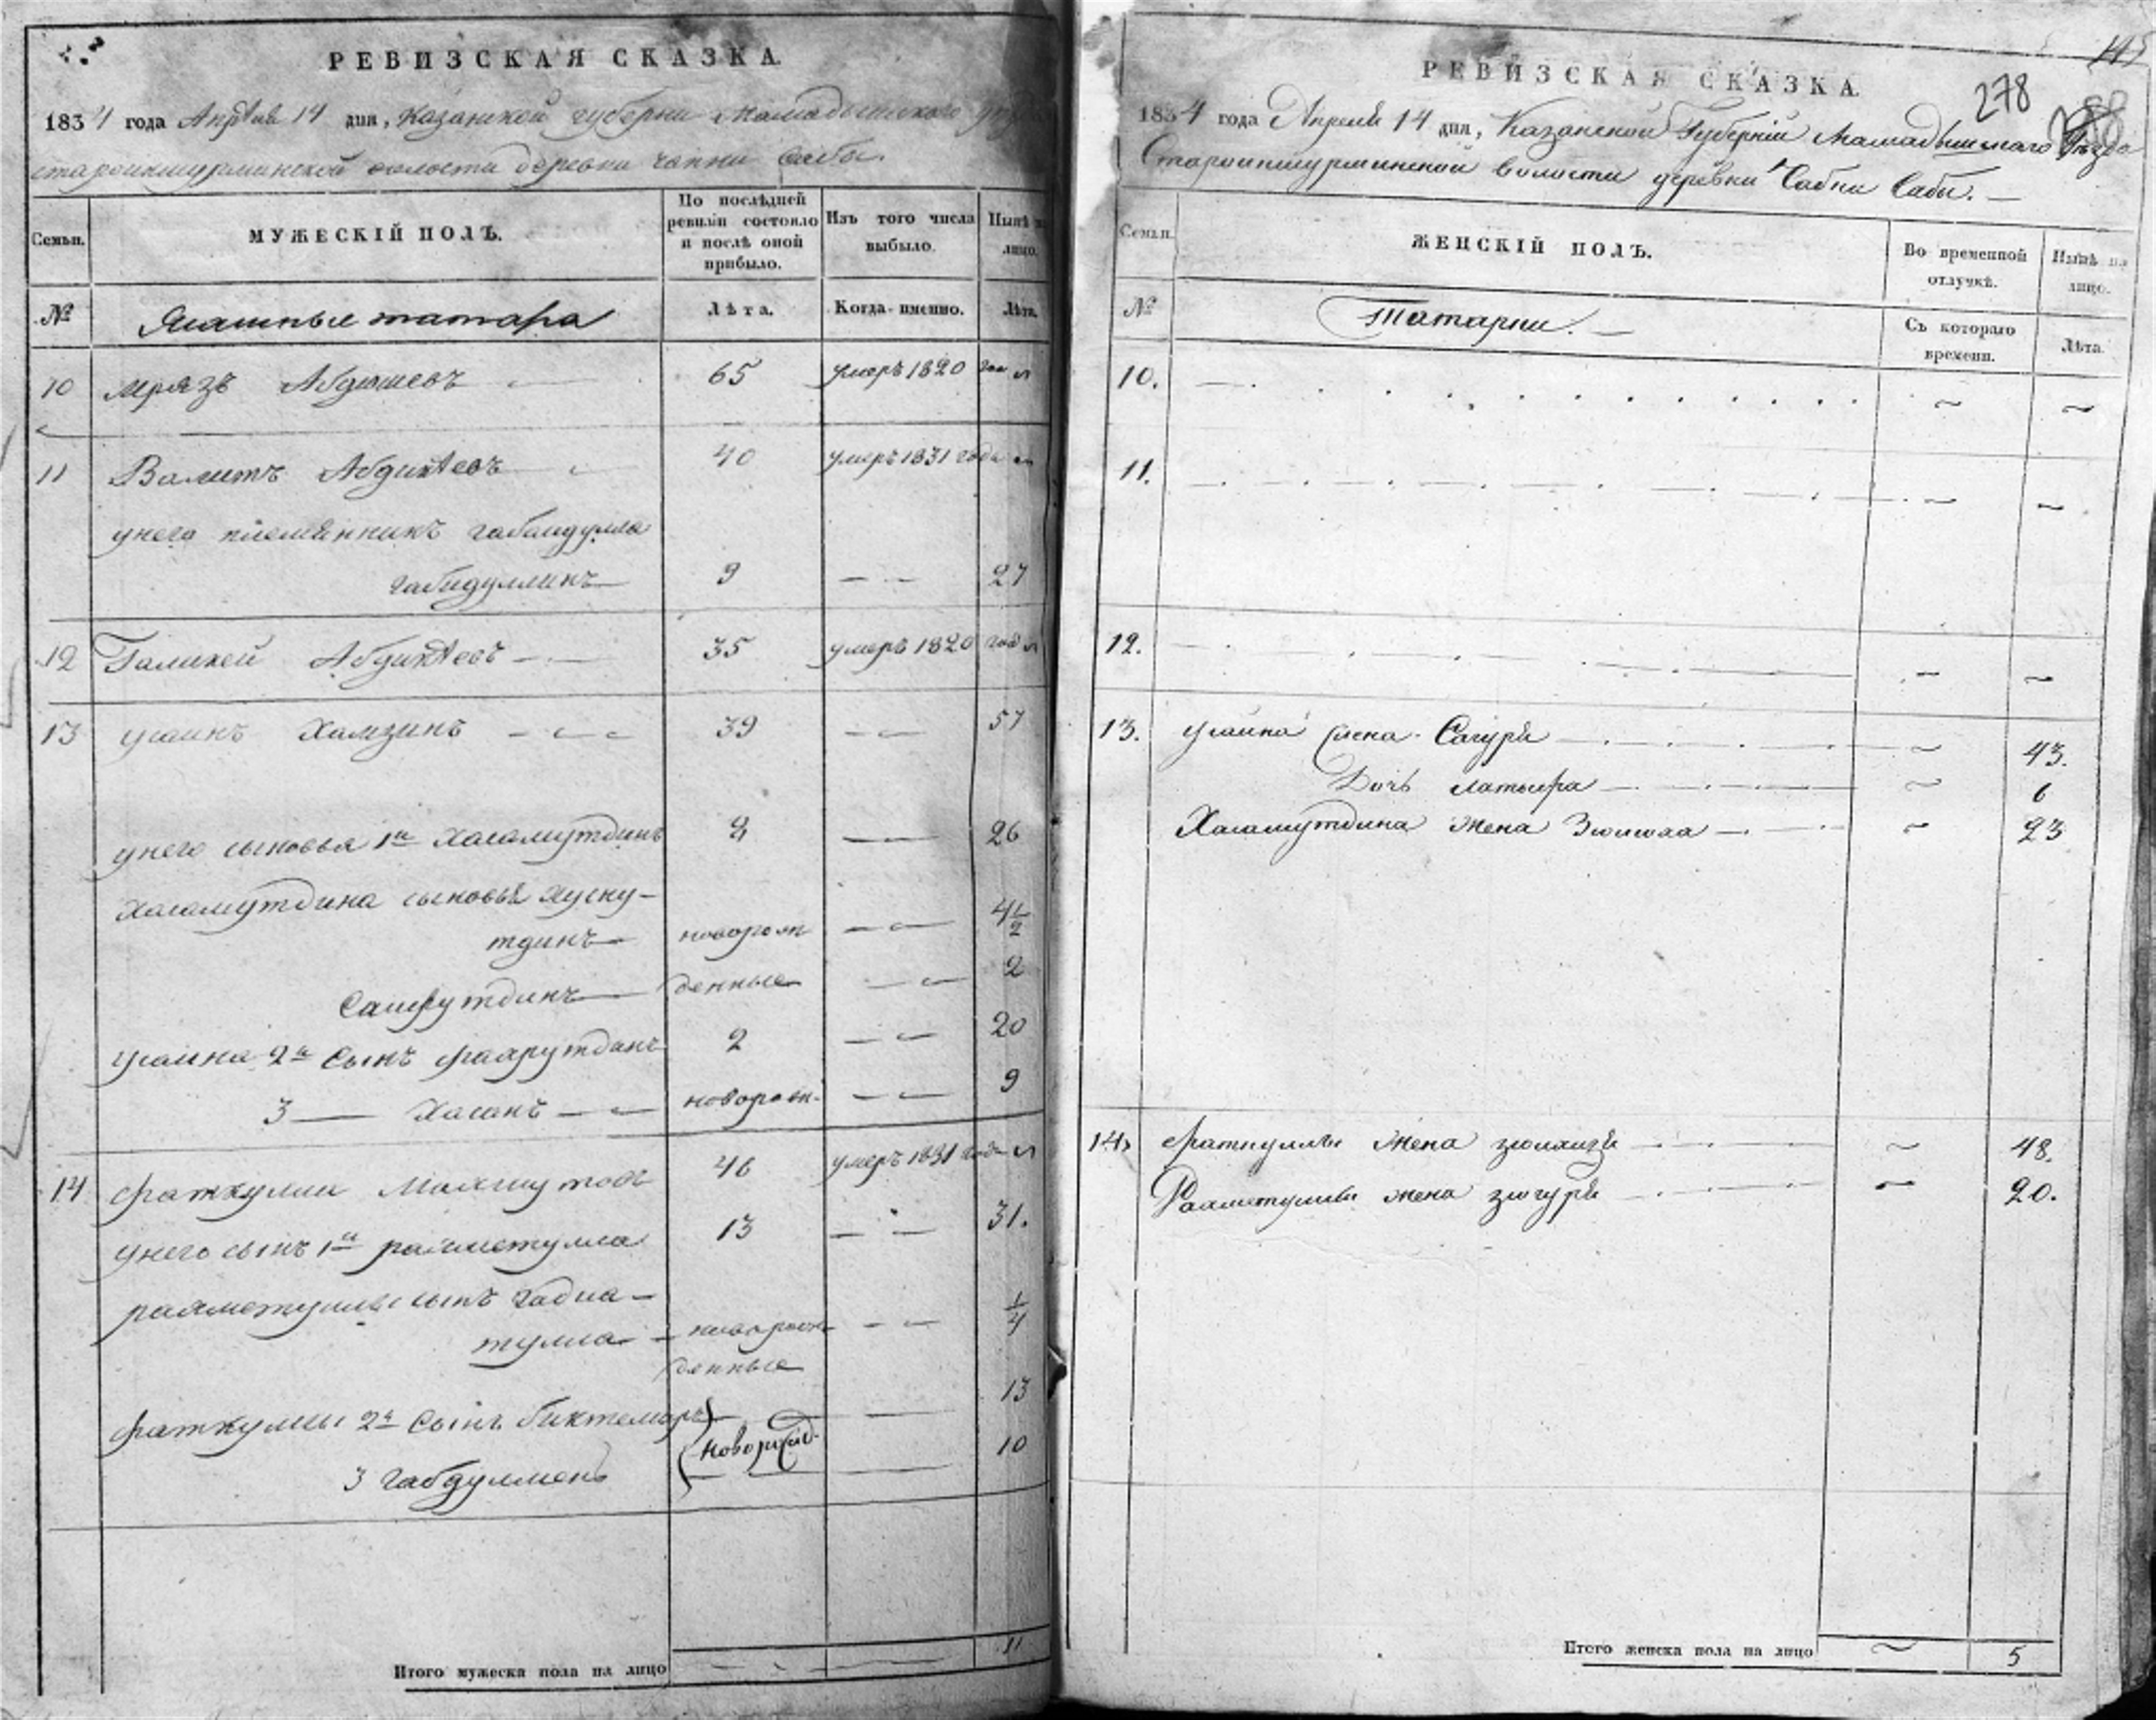 РЕВИЗСКАЯ СКАЗКА
1834 года Апреля 14 дня, Казанской губернии Мамадышского
староикшурминской волости деревни чапки сабы.
Семьи.
МУЖЕСКІЙ ПОЛЪ.
По послѣдней ревизіи состояло и послѣ оной прибыло.
Изъ того числа выбыло.
Нынѣ на лицо.
№
Ясашные татара
Лѣта.
Когда именно.
Лѣта.
10 Мрязъ Абдюшевъ 65 умеръ 1820 года
11 Валитъ Абдикѣевъ 40 умеръ 1831 года
унего племянникъ габайдулла
габидуллинъ 9 — 27
12 Галикей Абдикѣевъ 35 умеръ 1820 года
13 усаинъ Хамзинъ 39 — 57
унего сыновья 1й Хасамутдинъ 8 — 26
Хасамутдина сыновья хусну-
тдинъ новорож — 4 1/2
Сайфутдинъ денные — 2
усаина 2й Сынъ 2 — 20
3 — Хасанъ новорож. — 9
14 фаткулла Махмутовъ 46 умеръ 1831 года
унего сынъ 1й рахметулла 13 — 31.
рахметуллы сынъ гадиа-
тулла новорож — 1/4
денные
фаткуллы 2й Сынъ биктемиръ — 13
3 габдулменъ новорожд. — 10
Итого мужеска пола на лицо 11
РЕВИЗСКАЯ СКАЗКА
278
1834 года Апреля 14 дня, Казанской Губерніи Мамадышскаго Уѣзда
Староикшурминской волости деревни Чабки Сабы.
Семьи.
ЖЕНСКІЙ ПОЛЪ.
Во временной отлучкѣ.
Нынѣ на лицо.
№
Татарки.
Съ котораго времени.
Лѣта.
10.
11.
12.
13. усаина жена Сагуря 43.
Дочь латыфа 6
Хасамутдина жена 23
14. фаткуллы жена 48.
Рахметуллы жена зюгуря 20.
Итого женска пола на лицо 5